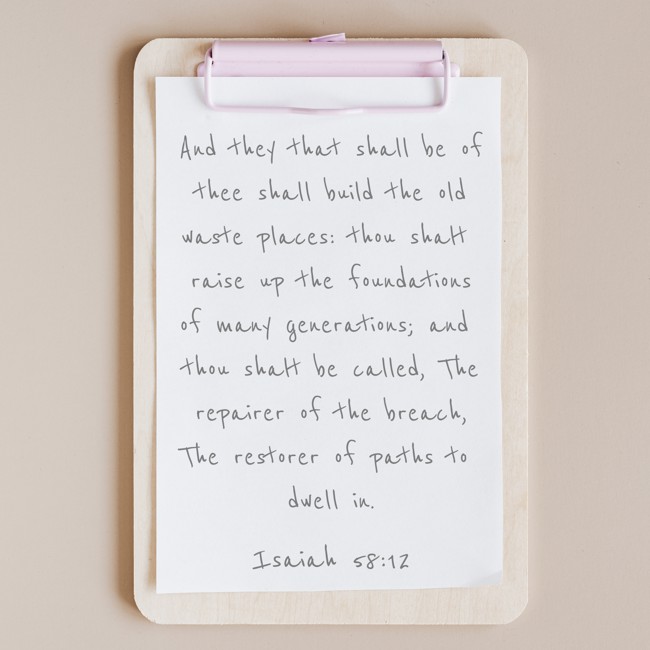 And they that shall be of
thee shall build the old
waste places: thou shalt
raise up the foundations
of many generations; and
thou shalt be called, The
repairer of the breach,
The restorer of paths to
dwell in.
Isaiah 58:12